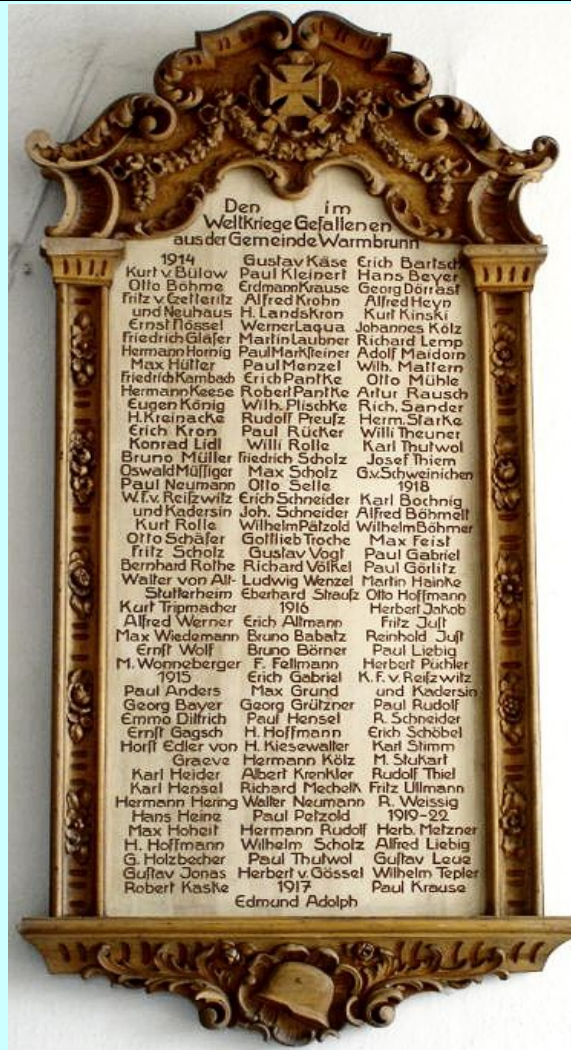 Den im
Weltkriege Gefallenen
aus der Gemeinde Warmbrunn
1914
Kurt v. Bülow
Otto Böhme
Fritz v. Czetteritz
und Neuhaus
Ernst Flössel
Friedrich Gläser
Hermann Hornig
Max Hütter
Friedrich Kambach
Hermann Keese
Eugen König
H. Kreinacke
Erich Kron
Konrad Lidl
Bruno Müller
Oswald Müssiger
Paul Neumann
W. F. v. Reißwitz
und Kadersin
Kurt Rolle
Otto Schäfer
Fritz Scholz
Bernhard Rothe
Walter von Alt-
Stutterheim
Kurt Tripmacher
Alfred Werner
Max Wiedemann
Ernst Wolf
M. Wonneberger
1915
Paul Anders
Georg Bayer
Emmo Dittrich
Ernst Gagsch
Horst Edler von
Graeve
Karl Heider
Karl Hensel
Hermann Hering
Hans Heine
Max Hoheit
H. Hoffmann
G. Holzbecher
Gustav Jonas
Robert Kaske
Gustav Käse
Paul Kleinert
Erdmann Krause
Alfred Krohn
H. Landskron
Werner Laqua
Martin Laubner
Paul Marksteiner
Paul Menzel
Erich Pantke
Robert Pantke
Wilh. Plischke
Rudolf Preußz
Paul Rücker
Willi Rolle
Friedrich Scholz
Max Scholz
Otto Selle
Erich Schneider
Joh. Schneider
Wilhelm Pätzold
Gottlieb Troche
Gustav Vogt
Richard Völkel
Ludwig Wenzel
Eberhard Strauß
1916
Erich Altmann
Bruno Babatz
Bruno Börner
F. Fellmann
Erich Gabriel
Max Grund
Georg Grützner
Paul Hensel
H. Hoffmann
H. Kiesewalter
Hermann Kölz
Albert Krenkler
Richard Mechelk
Walter Neumann
Paul Petzold
Hermann Rudolf
Wilhelm Scholz
Paul Thutwol
Herbert v. Gössel
1917
Edmund Adolph
Erich Bartsch
Hans Beyer
Georg Dörrast
Alfred Heyn
Kurt Kinski
Johannes Kölz
Richard Lemp
Adolf Maidorn
Wilh. Mattern
Otto Mühle
Artur Rausch
Rich. Sander
Herm. Starke
Willi Theuner
Karl Thutwol
Josef Thiem
G. v. Schweinichen
1918
Karl Bochnig
Alfred Böhmelt
Wilhelm Böhmer
Max Feist
Paul Gabriel
Paul Görlitz
Martin Hainke
Otto Hoffmann
Herbert Jakob
Fritz Just
Reinhold Just
Paul Liebig
Herbert Püchler
K. F. v. Reißwitz
und Kadersin
Paul Rudolf
R. Schneider
Erich Schöbel
Karl Stimm
M. Stukart
Rudolf Thiel
Fritz Ullmann
R. Weissig
1919-22
Herb. Metzner
Alfred Liebig
Gustav Leue
Wilhelm Tepler
Paul Krause